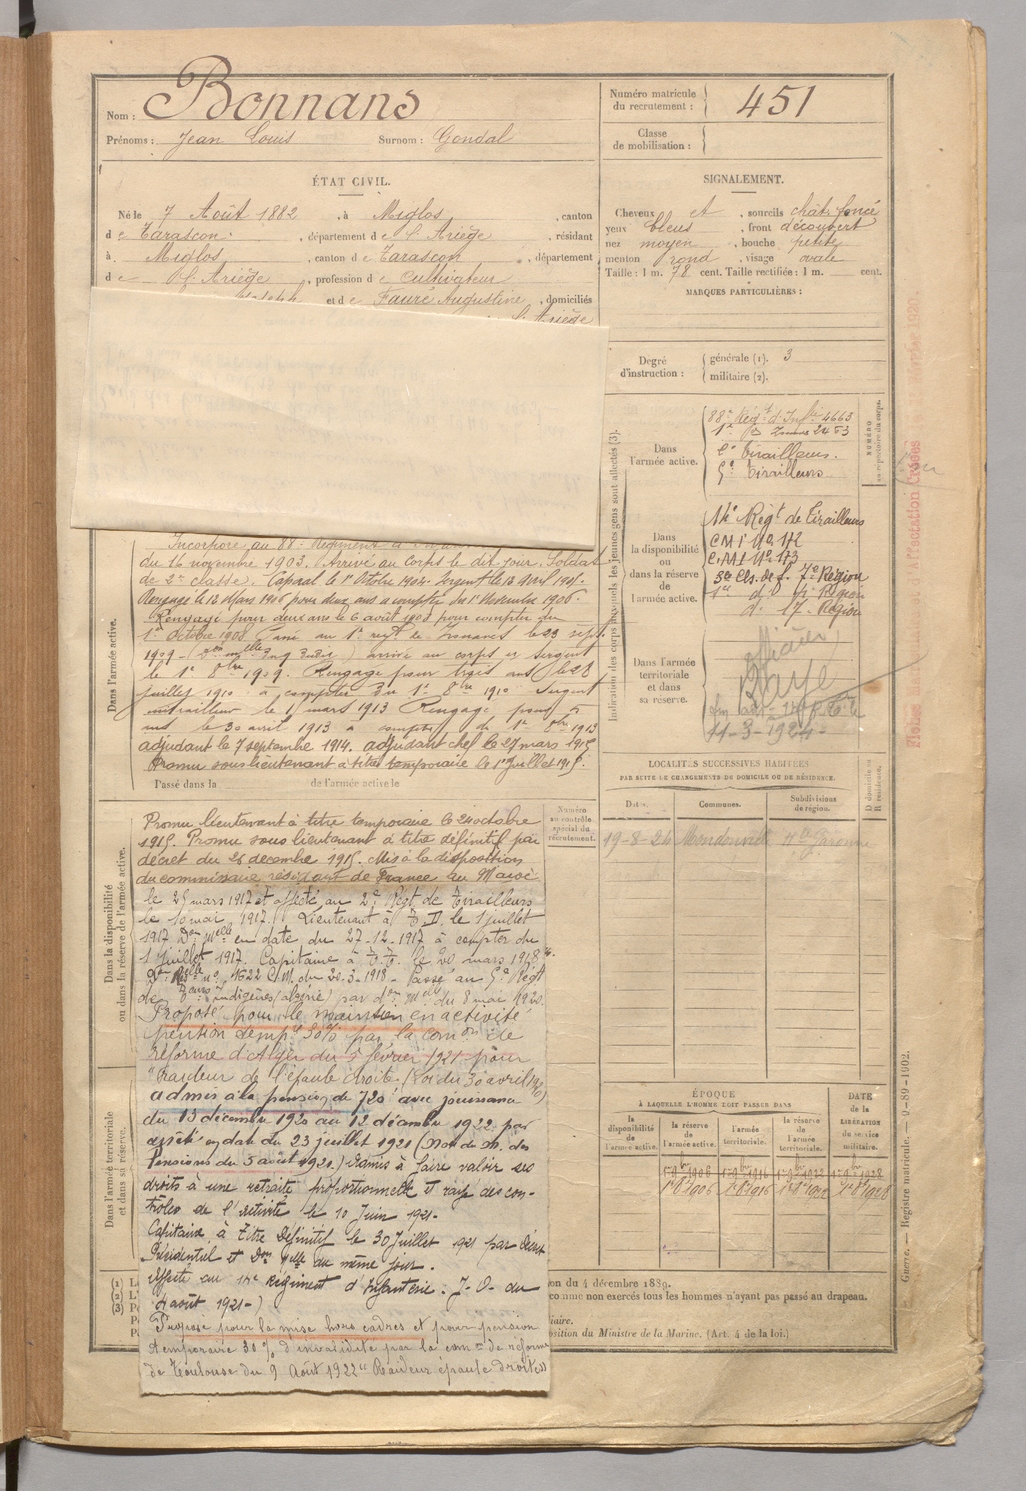 Nom : Bonnans
Prénoms : Jean Louis Surnom : Gondal
Numéro matricule du recrutement : 451
Classe de mobilisation :
ÉTAT CIVIL.
Né le 7 Août 1882, à Miglos, canton
de Tarascon, département de l'Ariège, résidant
à Miglos, canton de Tarascon, département
de l'Ariège, profession de Cultivateur
et de Faure Augustine, domiciliés
l'Ariège
SIGNALEMENT.
Cheveux et, sourcils chât. foncé
yeux bleus, front découvert
nez moyen, bouche petite
menton rond, visage ovale
Taille : 1 m. 78 cent. Taille rectifiée : 1 m. cent.
MARQUES PARTICULIÈRES :
Degré d'instruction : générale (1). 3
militaire (2).
Indication des corps auxquels les jeunes gens sont affectés (3).
Dans l'armée active.
88e Régt d'Infie 4663
1er Zouaves
Tirailleurs.
5e Tirailleurs
NUMÉRO au répertoire du corps.
Dans la disponibilité ou dans la réserve de l'armée active.
14e Régt de Tirailleurs
CMI No 172
CMI No 173
7e Région
17e Région
Dans l'armée territoriale et dans sa réserve.
officier
Rayé
11-3-1924
LOCALITÉS SUCCESSIVES HABITÉES
PAR SUITE DE CHANGEMENTS DE DOMICILE OU DE RÉSIDENCE.
Dates. Communes. Subdivisions de région. D domicile ou R résidence.
19-8-24 Mondonville Hte Garonne
Dans l'armée active.
Incorporé au 88e Régiment
du 16 novembre 1903. Arrivé au corps le dit jour, Soldat
de 2e classe. Caporal le 1er Octobre 1904. Sergent le 12 avril 1905.
Rengagé le 12 Mars 1906 pour deux ans à compter du 1er Novembre 1906.
Rengagé pour deux ans le 6 avril 1908 pour compter du
1er octobre 1908. Passé au 1er régt de Zouaves le 23 sept.
1909 arrivé au corps et sergent
le 1er 8bre 1909. Rengagé pour trois ans le 23
juillet 1910 à compter du 1er 8bre 1910 Sergent
mitrailleur le 1 mars 1913 Rengagé pour
ans le 30 avril 1913 à compter du 1er 8bre 1913
adjudant le 7 septembre 1914. adjudant chef le 27 mars 1915
Promu sous lieutenant à titre temporaire le 1er Juillet 1915.
Passé dans la de l'armée active le
Numéro au contrôle spécial du recrutement.
Dans la disponibilité ou dans la réserve de l'armée active.
Promu lieutenant à titre temporaire le 24 octobre
1915. Promu sous lieutenant à titre définitif par
décret du 26 decembre 1915. Mis à la disposition
du commissaire résident de France au Maroc
le 25 mars 1917 et affecté au 2e Régt de Tirailleurs
le 10 mai 1917. Lieutenant à T.D. le 1 juillet
1917 Don Melle en date du 27-12-1917 à compter du
1 juillet 1917. Capitaine à T.T. le 20 mars 1918
No 4622 C/M. du 20-3-1918 - Passé au 5e Régt
de Tirs indigènes (algérie) par don melle du 8 mai 1920.
Proposé pour le maintien en activité
pension temp. 30% par la comon de
réforme d'Alger du 5 février 1921 pour
"Raideur de l'épaule droite. (Loi du 30 avril 1920)
admis à la pension de 720f avec jouissance
du 13 décembre 1920 au 12 décembre 1922 par
arrêté en date du 23 juillet 1921 (Not. du M. des
Pensions du 5 août 1921.) Admis à faire valoir ses
droits à une retraite proportionnelle et rayé des con-
trôles de l'activité le 10 Juin 1921.
Capitaine à Titre Définitif le 30 Juillet 1921 par décret
Présidentiel et Don Melle du même jour.
Affecté au 14e Régiment d'Infanterie. J.O. du
4 août 1921.)
Proposé pour la mise hors cadres et pour pension
temporaire 30% d'invalidité par la comon de réforme
de Toulouse du 9 Août 1922 "Raideur épaule droite"
Dans l'armée territoriale et dans sa réserve.
ÉPOQUE
À LAQUELLE L'HOMME DOIT PASSER DANS
la disponibilité de l'armée active. la réserve de l'armée active. l'armée territoriale. la réserve de l'armée territoriale. DATE de la LIBÉRATION du service militaire.
1er 9bre 1906 1er 9bre 1916 1er 9bre 1922 1er 9bre 1928
1er 8bre 1906 1er 8bre 1916 1er 8bre 1922 1er 8bre 1928
(1)
(2)
(3)
on du 4 décembre 1889.
comme non exercés tous les hommes n'ayant pas passé au drapeau.
osition du Ministre de la Marine. (Art. 4 de la loi.)
Guerre. — Registre matricule. — 9-89-1902.